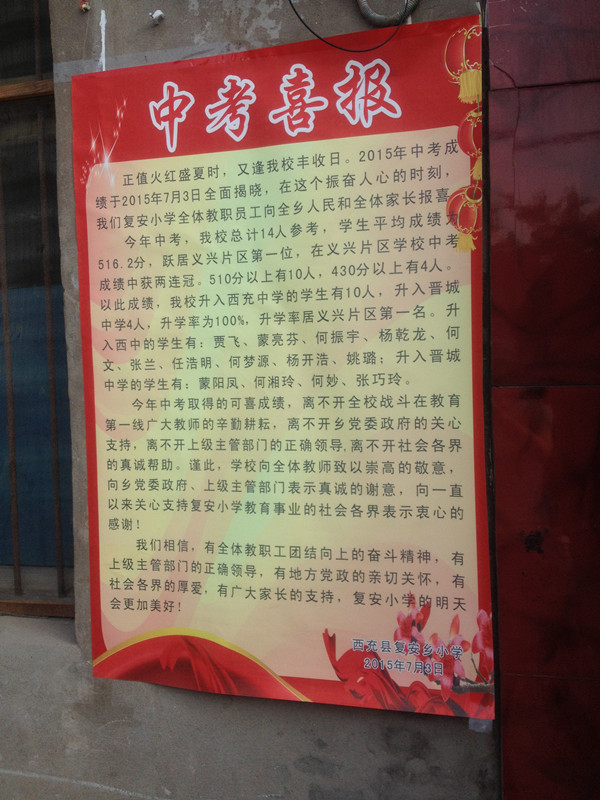 中考喜报
正值火红盛夏时，又逢我校丰收日。2015年中考成
绩于2015年7月3日全面揭晓，在这个振奋人心的时刻，
我们复安小学全体教职员工向全乡人民和全体家长报喜
今年中考，我校总计14人参考，学生平均成绩为
516.2分，跃居义兴片区第一位，在义兴片区学校中考
成绩中获两连冠。510分以上有10人，430分以上有4人。
以此成绩，我校升入西充中学的学生有10人，升入晋城
中学4人，升学率为100%，升学率居义兴片区第一名。升
入西中的学生有：贾飞、蒙亮芬、何振宇、杨乾龙、何
文、张兰、任浩明、何梦源、杨开浩、姚璐；升入晋城
中学的学生有：蒙阳凤、何湘玲、何妙、张巧玲。
今年中考取得的可喜成绩，离不开全校战斗在教育
第一线广大教师的辛勤耕耘，离不开乡党委政府的关心
支持，离不开上级主管部门的正确领导,离不开社会各界
的真诚帮助。谨此，学校向全体教师致以崇高的敬意，
向乡党委政府、上级主管部门表示真诚的谢意，向一直
以来关心支持复安小学教育事业的社会各界表示衷心的
感谢！
我们相信，有全体教职工团结向上的奋斗精神，有
上级主管部门的正确领导，有地方党政的亲切关怀，有
社会各界的厚爱，有广大家长的支持，复安小学的明天
会更加美好！
西充县复安乡小学
2015年7月3日